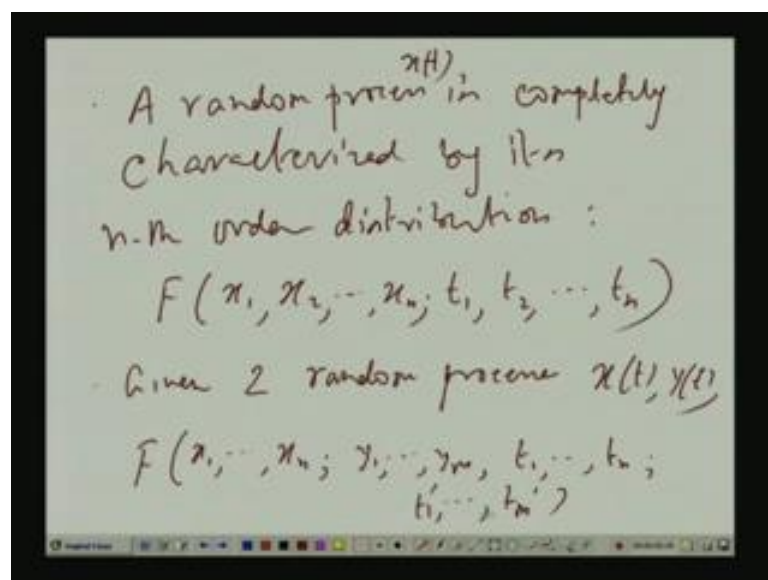 x(t)
A random process is completely
characterized by its
n-th order distribution :
F(x₁, x₂, ..., xₙ; t₁, t₂, ..., tₙ)
Given 2 random processes x(t), y(t)
F(x₁, ..., xₙ; y₁, ..., yₘ, t₁, ..., tₙ;
t₁', ..., tₘ')